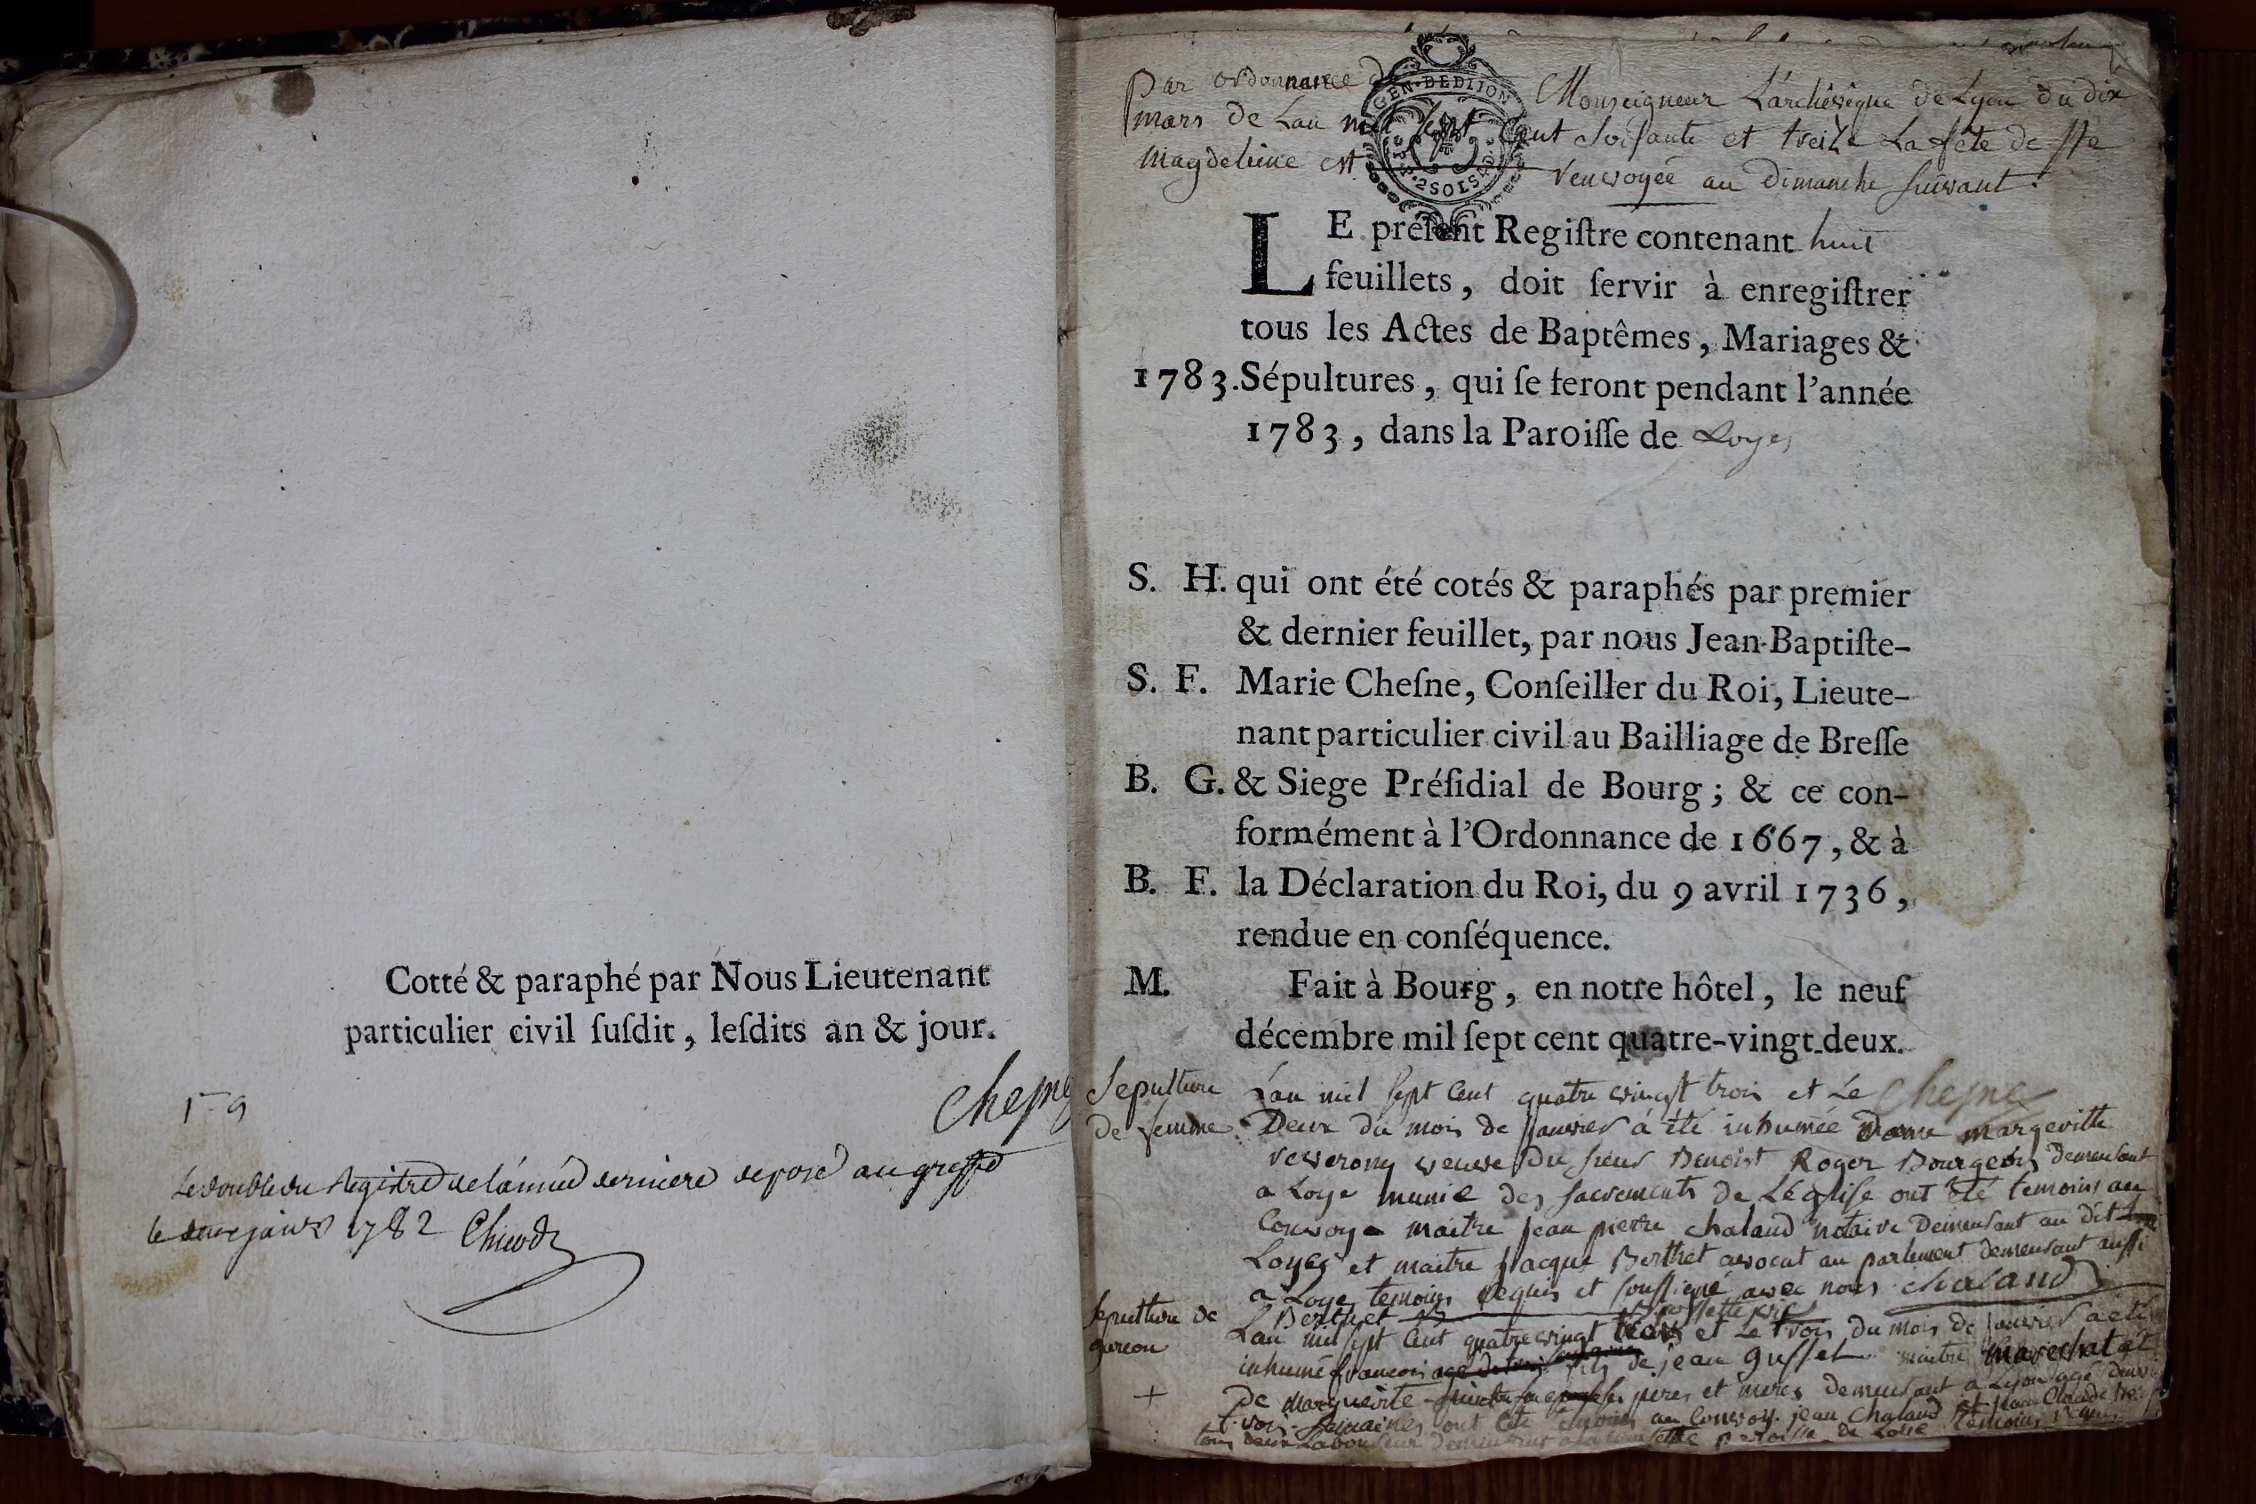 Cotté & paraphé par Nous Lieutenant
particulier civil ſuſdit, leſdits an & jour.
Cheſne
1 - 9
Le double du Registre de l'année derniere deposé au greffe
le janvr 1782
Par ordonnance de Monseigneur L'archévêque de Lyon du dix
GEN. DE DIION
mars de Lan mil sept Cent soisante et treize La fête de Ste
Magdeleine est renvoyée au Dimanche suivant.
2 SOLS
LE préſent Regiſtre contenant huit
feuillets, doit ſervir à enregiſtrer
tous les Actes de Baptêmes, Mariages &
1783. Sépultures, qui ſe feront pendant l'année
1783, dans la Paroiſſe de Loyes
S. H. qui ont été cotés & paraphés par premier
& dernier feuillet, par nous Jean-Baptiſte-
S. F. Marie Cheſne, Conſeiller du Roi, Lieute-
nant particulier civil au Bailliage de Breſſe
B. G. & Siege Préſidial de Bourg; & ce con-
formément à l'Ordonnance de 1667, & à
B. F. la Déclaration du Roi, du 9 avril 1736,
rendue en conſéquence.
M. Fait à Bourg, en notre hôtel, le neuf
décembre mil ſept cent quatre-vingt-deux.
Cheſne
Sepulture de femme
L'an mil sept Cent quatre vingt trois et Le
Deux du mois de janvier a été inhumée Dame margeritte
veuve du sieur Benoist Roger Bourgeois demeurant
a Loye munie des sacrements de L'église ont été temoins au
Convoye maitre jean pierre chaland notaire Demeurant au dit
Loyes et maitre jacque Berthet avocat au parlement demeurant aussi
a Loye temoins requis et soussigné avec nous chaland
Berthet
Sepulture de garcon
L'an mil sept Cent quatre vingt trois et Le trois du mois de janvier a été
inhumé francois fils de jean gusset maitre marechal et
de marguerite peres et meres demeurant a Lyon agé
trois semaines ont été temoins au Convoy jean Chaland et jean Claude
tous deux Laboureur demeurant paroisse de Loye temoins requis